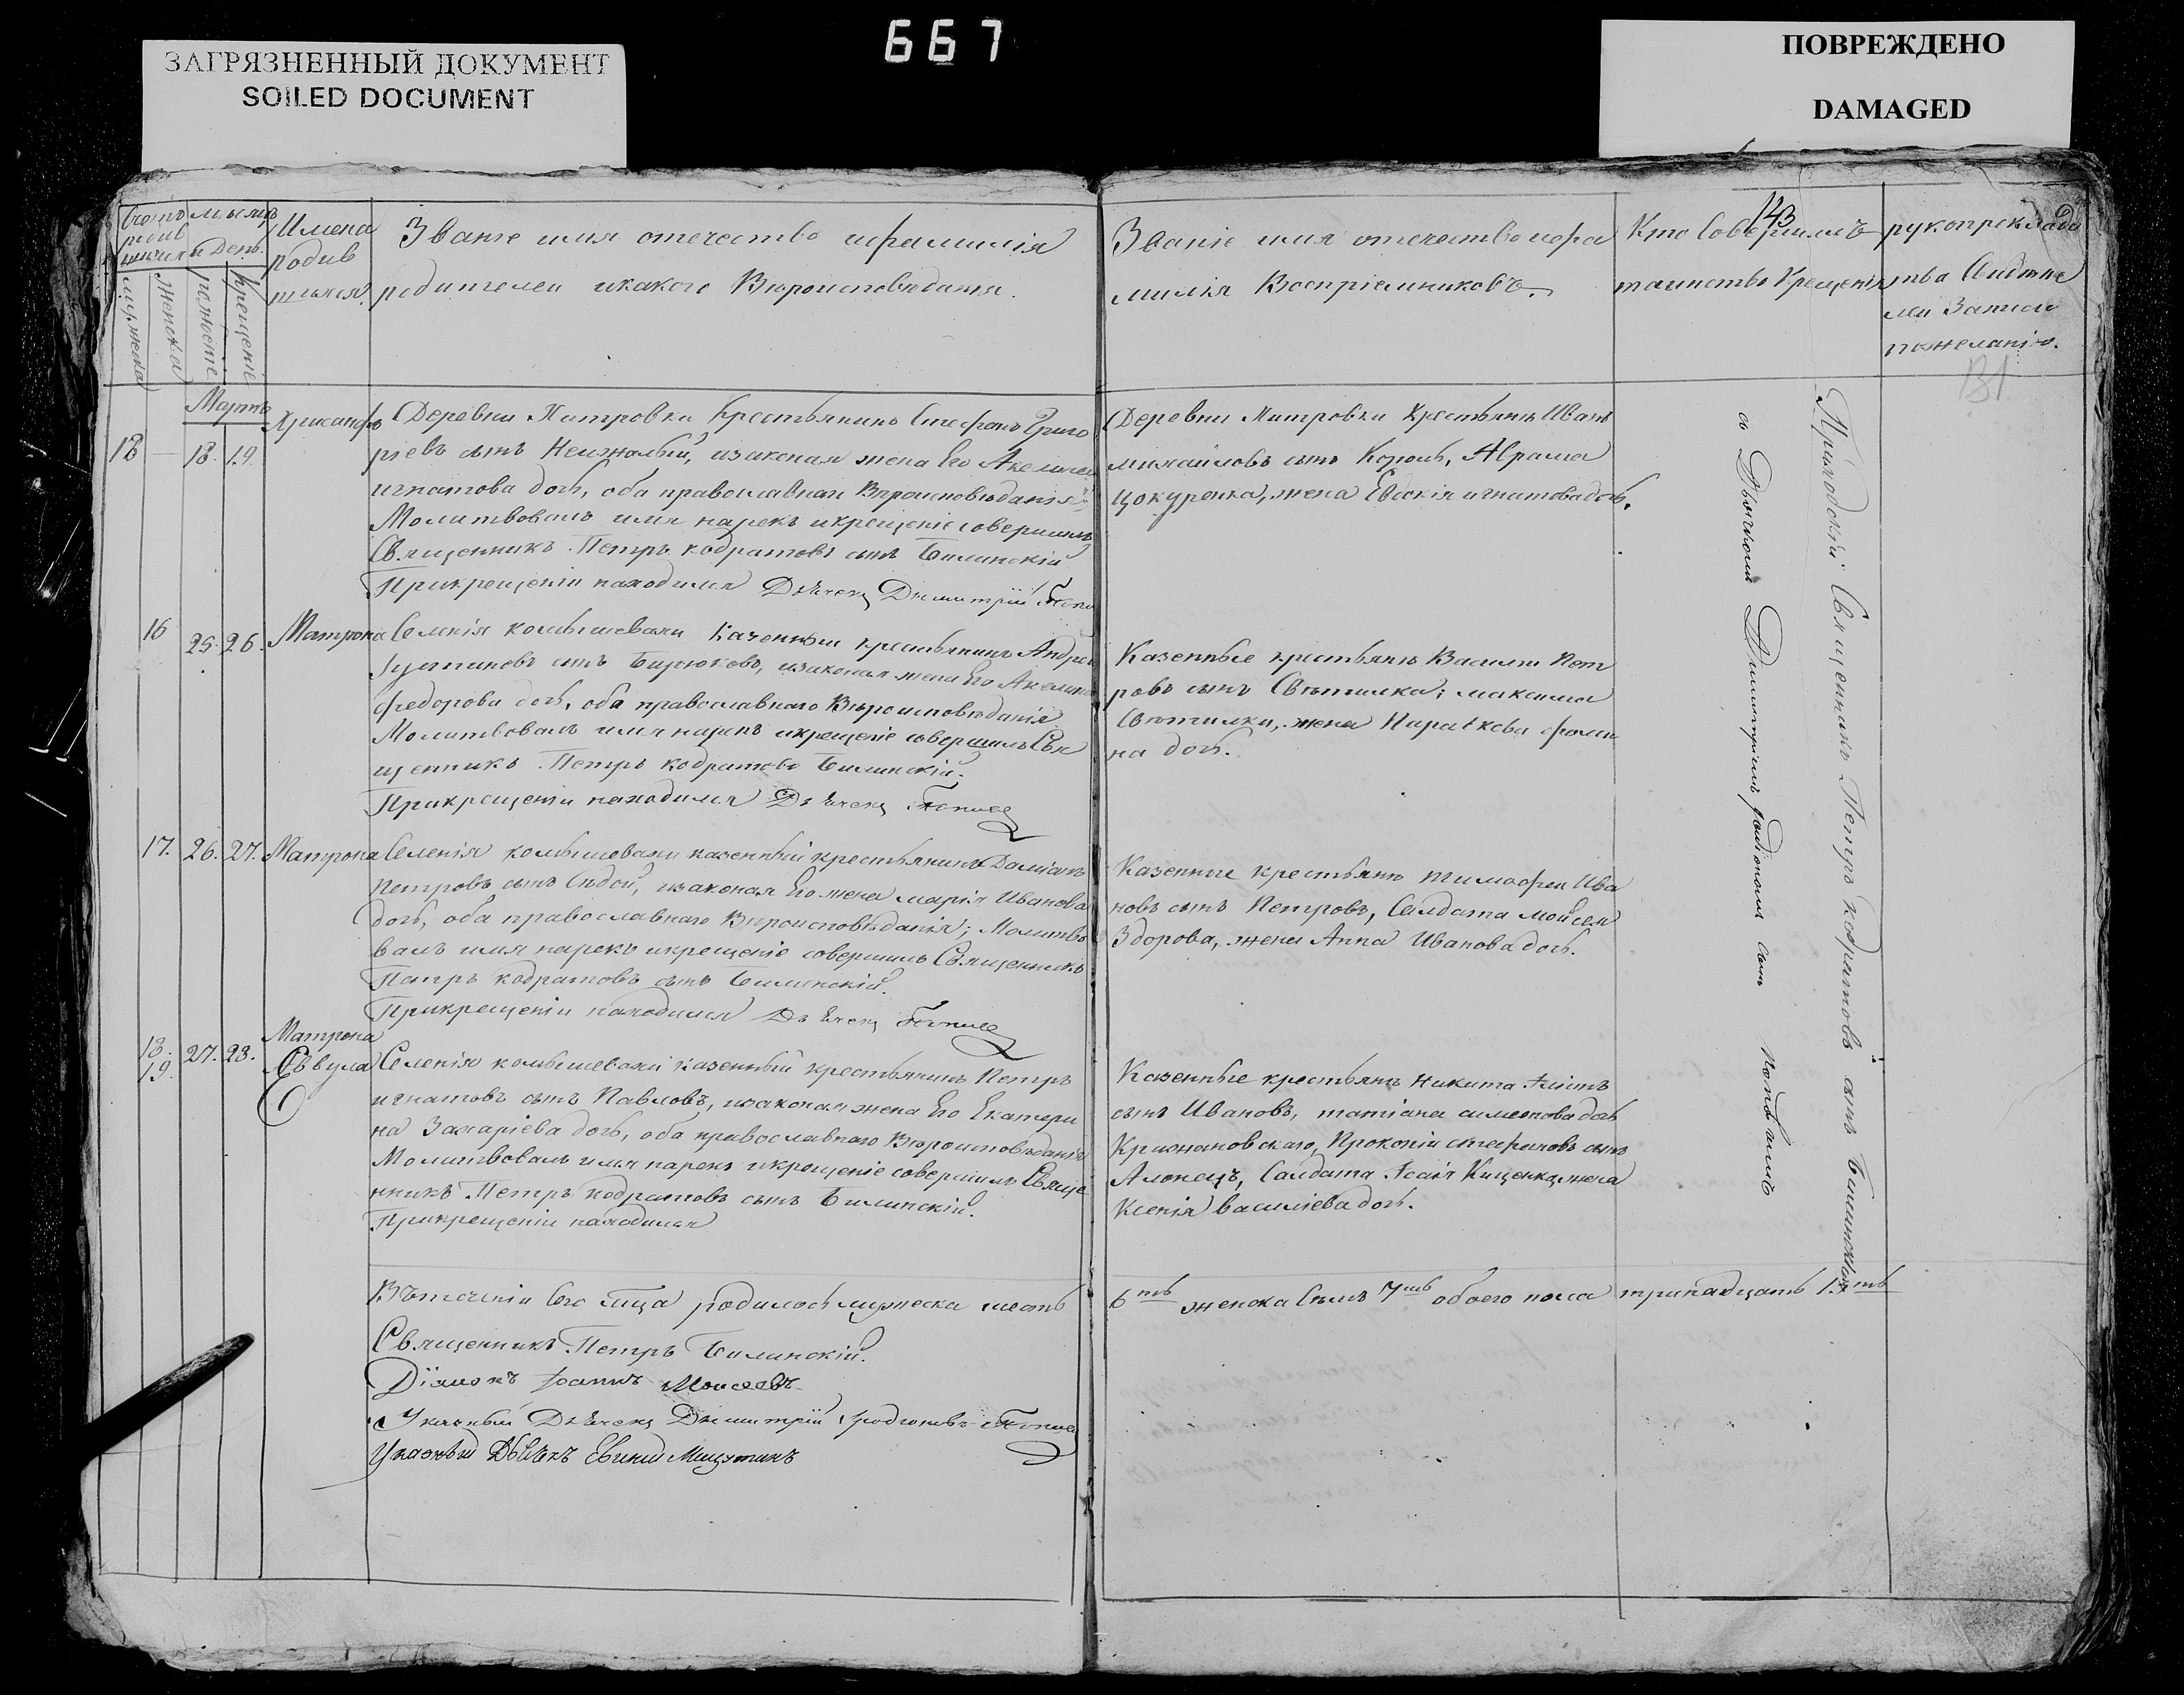 667
ЗАГРЯЗНЕННЫЙ ДОКУМЕНТ
SOILED DOCUMENT
ПОВРЕЖДЕНО
DAMAGED
143
131
Счотъ родив шихся
мужеска
женска
мѣсяцъ и День.
рожденіе
крещеніе
Имена
родив
шихся.
Званіе имя отечество ифамилія
родителей икакого Вѣроисповѣданія.
Званіе имя отечество ифа
милія Воспріемниковъ.
Кто Совершилъ
таинство Крещенія
рукоприклада
тва Свидѣте
лей Записи
пожеланію.
Мартъ
18 — 18. 19. Хрисанфъ
Деревни Митровки Крестьянинъ Стефанъ Григо
ріевъ сынъ Неижмаый, изаконая жена Его Акелина
игнатова дочь, оба православнаго Вѣроисповѣданія
Молитвовалъ имя нарекъ икрещеніе совершилъ
Священникъ Петръ кодратовъ сынъ Билинскій
Прикрещеніи находился Дьячекъ Димитрій
Деревни Митровки Крестьянъ Иванъ
михайловъ сынъ Король, Абрама
Цокуренка, жена Евдокія игнатова дочь.
16 25. 26. Матрона
Селенія комышевахи Казенный крестьянинъ Андрей
сынъ Бирюковъ, изаконая жена Его Акелина
федорова дочь, оба православнаго Вѣроисповѣданія
Молитвовалъ имя нарекъ икрещеніе совершилъ Свя
щенникъ Петръ кодратовъ Билинскій.
Прикрещеніи находился Дьячекъ
Казенные крестьянъ Василій Пет
ровъ сынъ Свѣтилка; максима
Свѣтилки, жена Параскева фоми
на дочь.
17. 26. 27. Матрона
Селенія комышевахи казенный крестьянинъ Даміанъ
Петровъ сынъ Сѣдой, изаконая Его жена марія Иванова
дочь, оба православнаго Вѣроисповѣданія; Молитво
валъ имя нарекъ икрещеніе совершилъ Священникъ
Петръ кодратовъ сынъ Билинскій.
Прикрещеніи находился Дьячекъ
Казенные крестьянъ тимофей Ива
новъ сынъ Петровъ, Салдата мойсея
Здорова, жена Анна Иванова дочь.
18. 19. 27. 28. Матрона
Еввула
Селенія комышевахи казенный крестьянинъ Петръ
игнатовъ сынъ Павловъ, изаконая жена Его Екатери
на Захаріева дочь, оба православнаго Вѣроисповѣданія
Молитвовалъ имя нарекъ икрещеніе совершилъ Свяще
нникъ Петръ кодратовъ сынъ Билинскій.
Прикрещеніи находился
Казенные крестьянъ Никита
сынъ Ивановъ, татіана симеонова дочь
Крижановскаго, Прокопій стефановъ сынъ
Алонецъ, Салдата Ісаія Кищенка, жена
Ксенія василіева дочь.
Приходскій Священникъ Петръ кодратовъ сынъ Билинскій
съ Дьячкомъ Димитріемъ родіоновъ сынъ
Втеченіи Сего мѣсяца родилось мужеска шесть
6ть женска Семъ 7мь обоего пола тринадцать 13ть
Священникъ Петръ Билинскій.
Діяконъ Іоаннъ Моисеевъ
Указный Дьячекъ Димитрій родіоновъ
Указный Дьячекъ